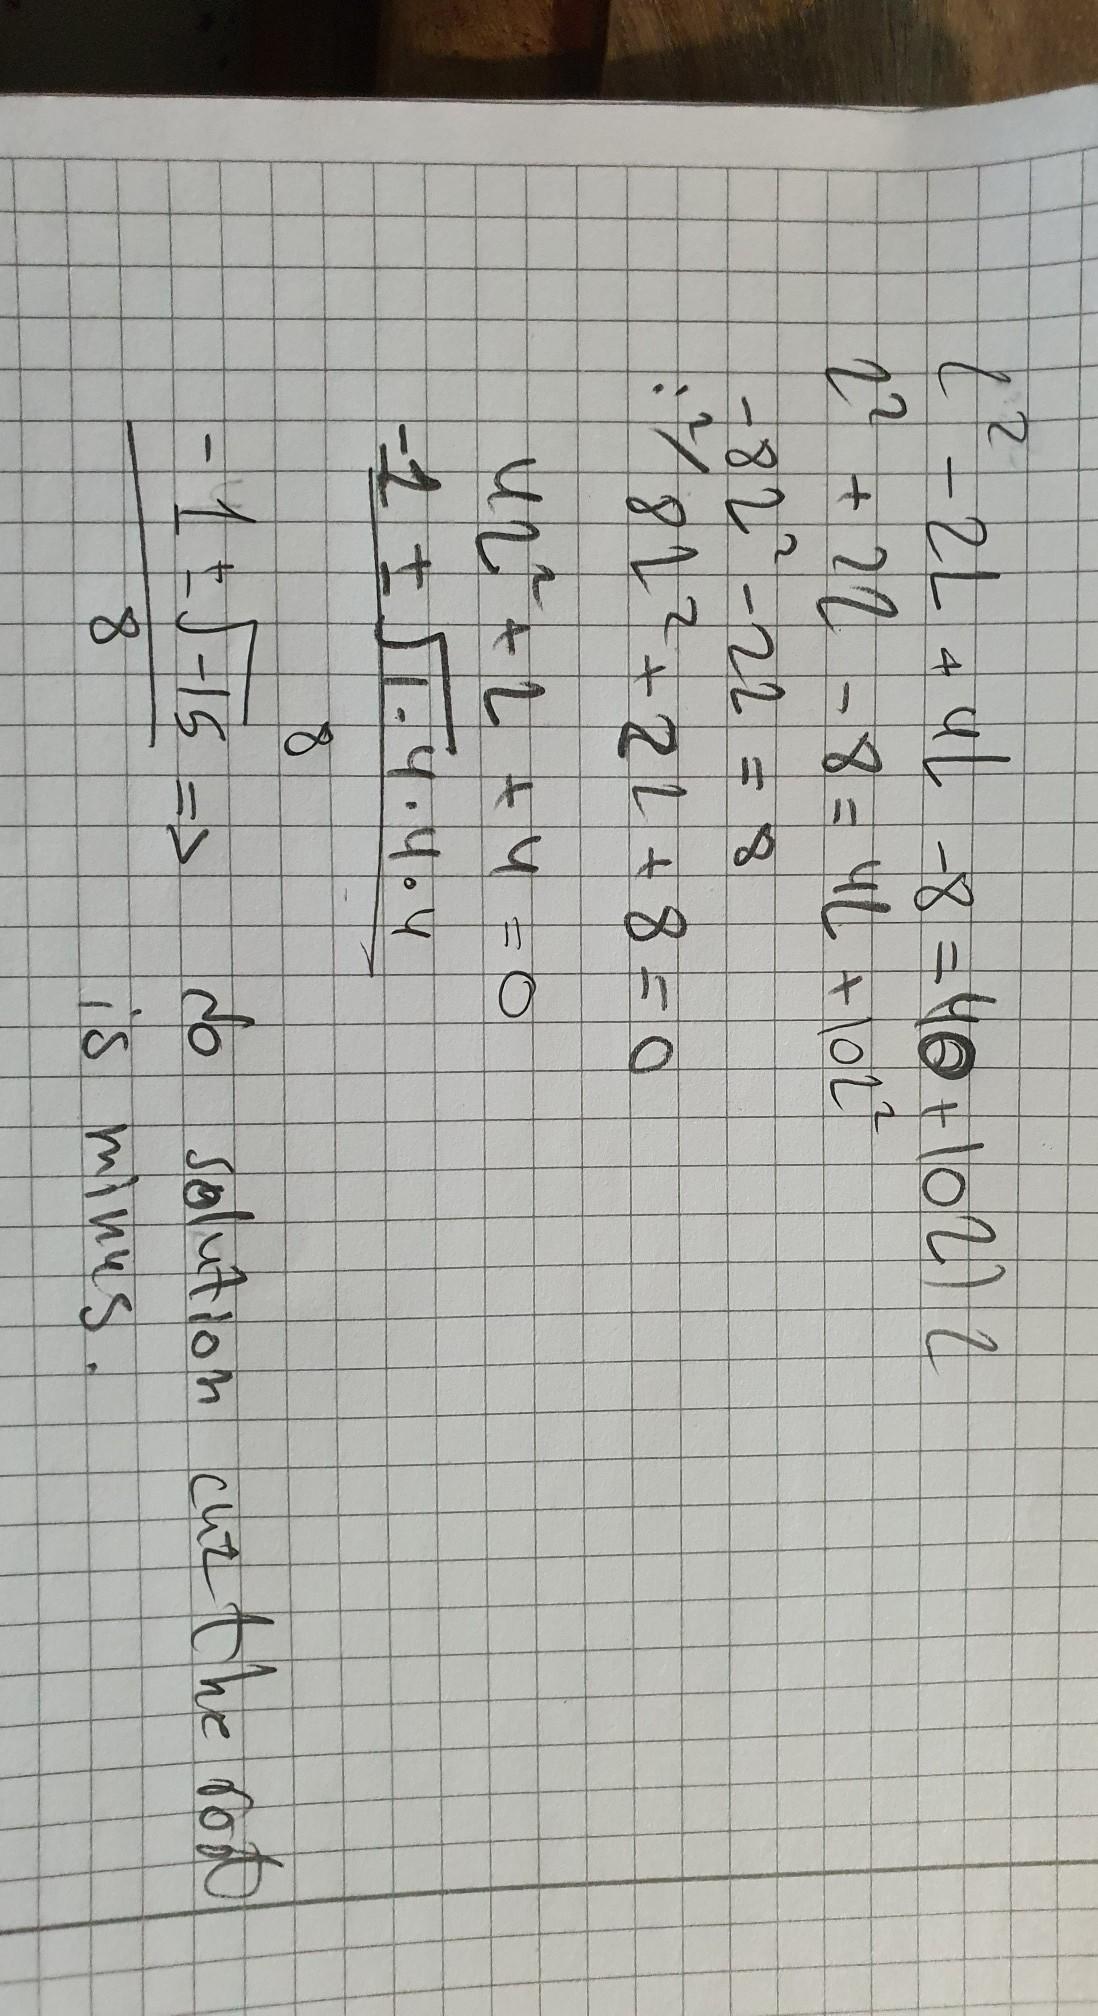 l² - 2l + 4l - 8 = 40 + 10l) l
l² + 2l - 8 = 4l + 10l²
-8l² - 2l = 8
:2/ 8l² + 2l + 8 = 0
4l² + l + 4 = 0
-1 ± √1 · 4 · 4 · 4
8
-1 ± √-15 => No solution cuz the root
8 is minus.